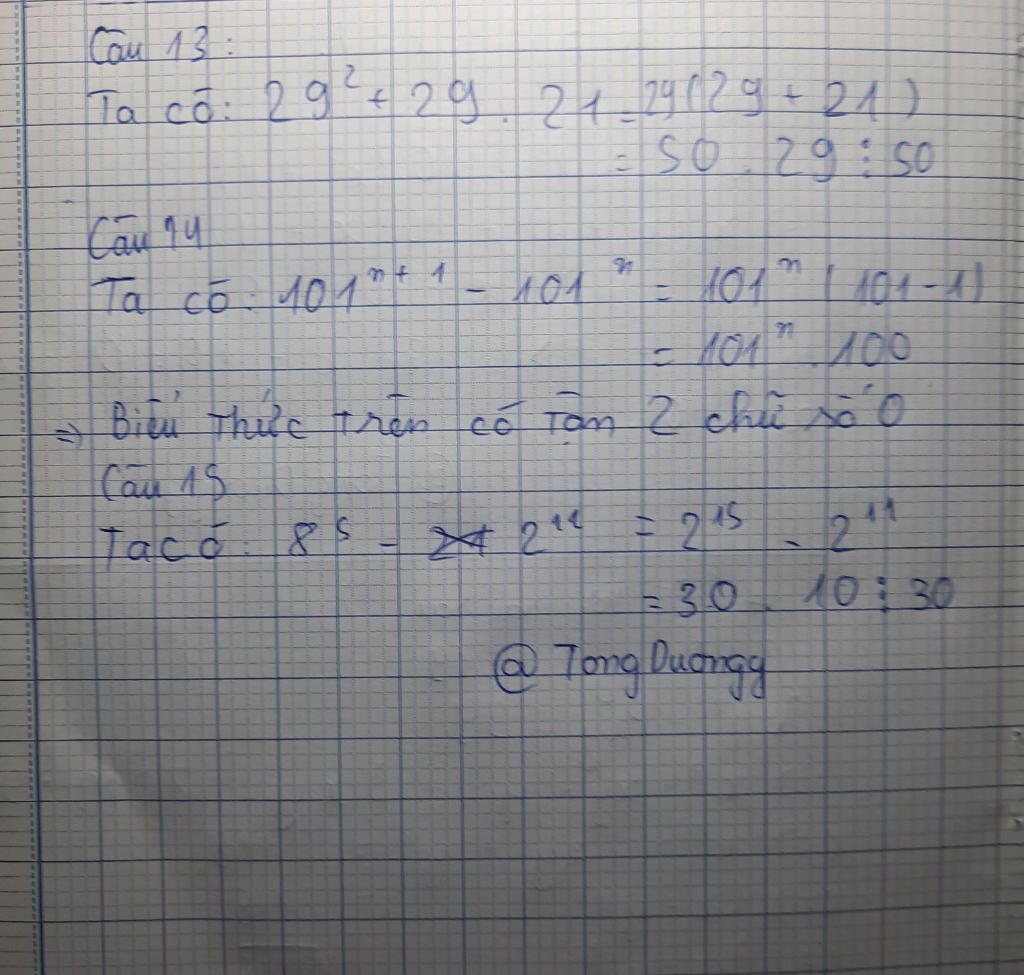 Câu 13:
Ta có: 29² + 29 . 21 = 29(29 + 21)
= 50 . 29 ⋮ 50
Câu 14
Ta có: 101ⁿ⁺¹ - 101ⁿ = 101ⁿ (101-1)
= 101ⁿ . 100
⇒ Biểu thức trên có tận 2 chữ số 0
Câu 15
Ta có: 8⁵ - 2¹¹ = 2¹⁵ - 2¹¹
= 30 . 10 ⋮ 30
@ TongDuongg